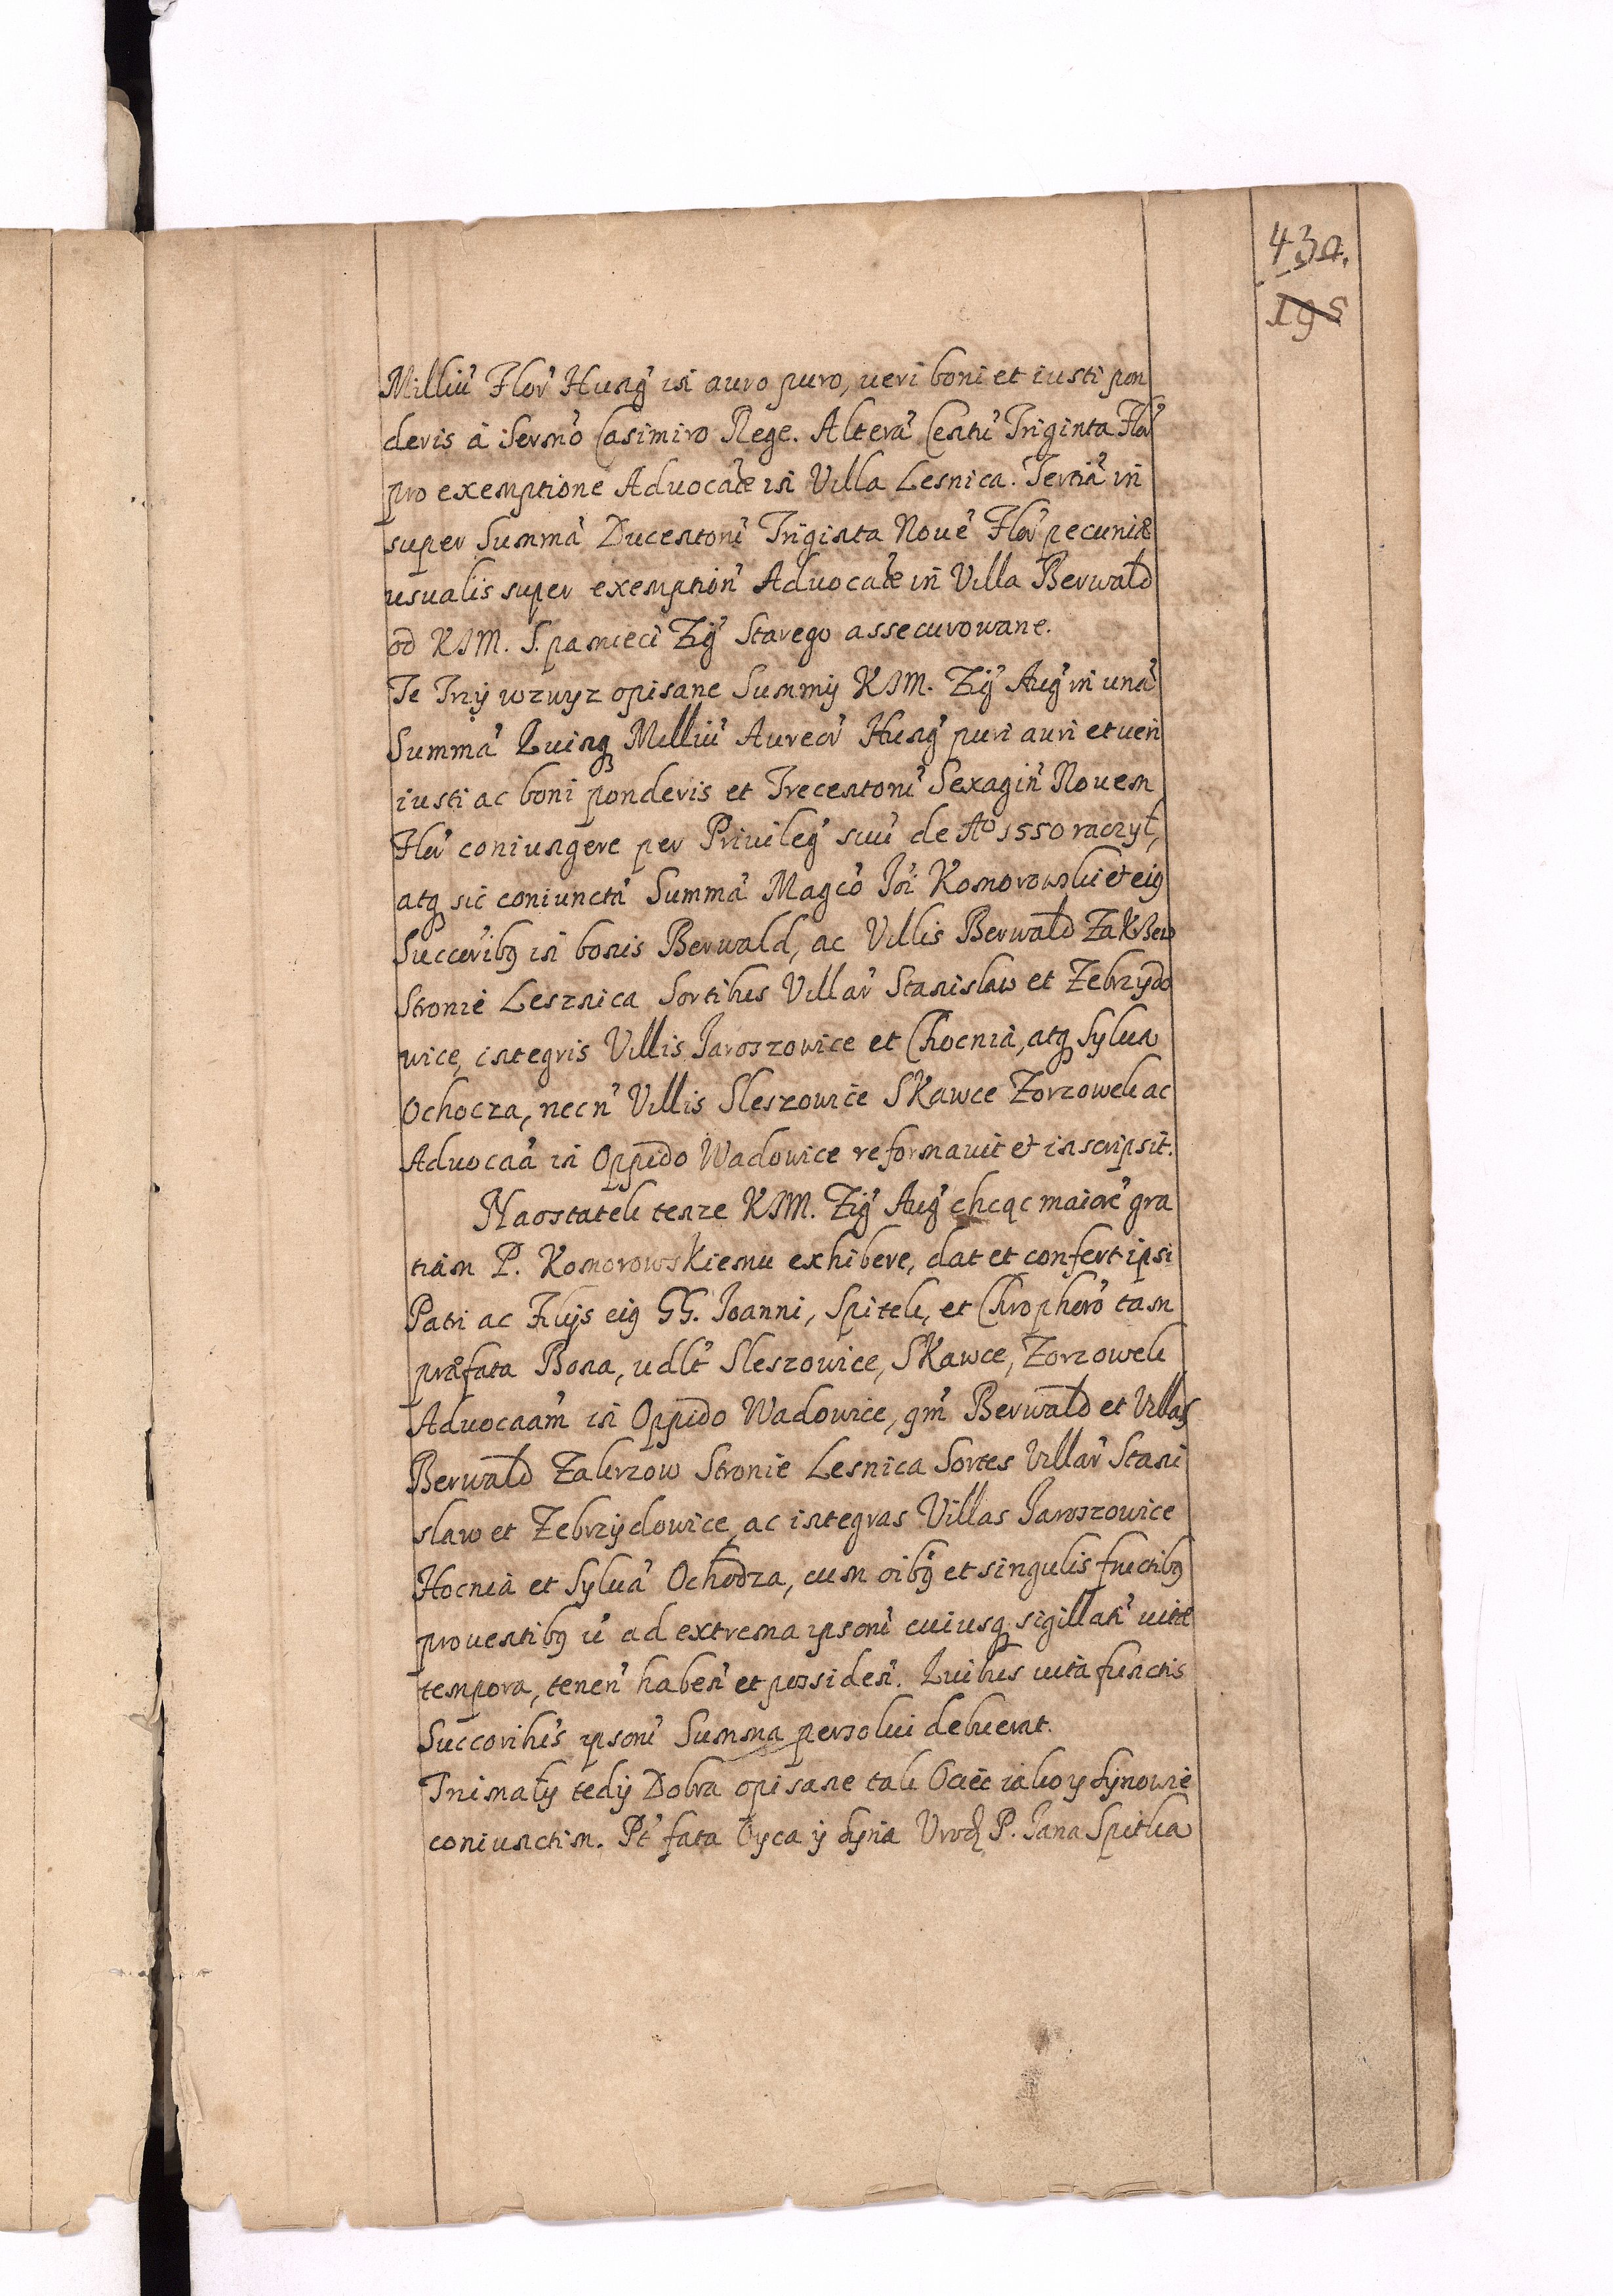 430.
195
Milliū Flor' Hung' in auro puro, veri boni et iusti pon
deris á Serm̃o Casimiro Rege. Alterā Centū Triginta Flor'
pro exemptione Aduocatiæ in Villa Lesnica. Tertiā in
super Summā Ducentorū Triginta Nouē Flor' pecuniæ
usualis super exemption' Aduocatiæ in Villa Berwałd
od KJM. S. pamieci Zijg' Starego assecurowane.
Te Trzÿ wzwyz opisane Summÿ KJM. Zijg' Aug' in unā
Summā Quinq3 Milliū Aureor' Hung' puri auri et veri
iusti ac boni ponderis et Trecentorū Sexagin' Nouem
Flor' coniungere per Priuileg' suū de Aº 1550 raczył,
atq3 sic coniunctā Summā Magco Joī Komorowski et eiq
Succorib9 in bonis Berwald, ac Villis Berwałd Zakrzew
Stronie Lesznica Sortibus Villar' Stanislaw et Zebrzÿdo
wice, integris Villis Jaroszowice et Chocnia, atq3 Sylua
Ochocza, necn' Villis Sleszowice Skawce Zorzowek ac
Aduocaā in Oppido Wadowice reformauit et inscripsit.
Naostatek tenze KJM. Zijg' Aug' chcąc maiorē gra
tiam P. Komorowskiemu exhibere, dat et confert ipsi
Patri ac Filijs ei9 GG. Joanni, Spitek, et Chrophero tam
præfata Bona, udlt' Sleszowice, Skawce, Zorzowek
Aduocaam in Oppido Wadowice, qm' Berwałd et Villas
Berwałd Zakrzow Stronie Lesnica Sortes Villar' Stani
slaw et Zebrzÿdowice, ac integras Villas Jaroszowice
Hocnia et Syluā Ochodza, cum oib9 et singulis fructib9
prouentib9 ū ad extrema ipsorū cuiusq3 sigillati' vitæ
tempora, tenen' haben' et possiden'. Quibus vita functis
Succoribus ipsorū Summa persolui debuerat.
Trimalÿ tedÿ Dobra opisane tak Ociec iako ÿ sÿnowie
coniunctim. Pt' fata Oyca ÿ sÿna Urodz P. Jana Spitka